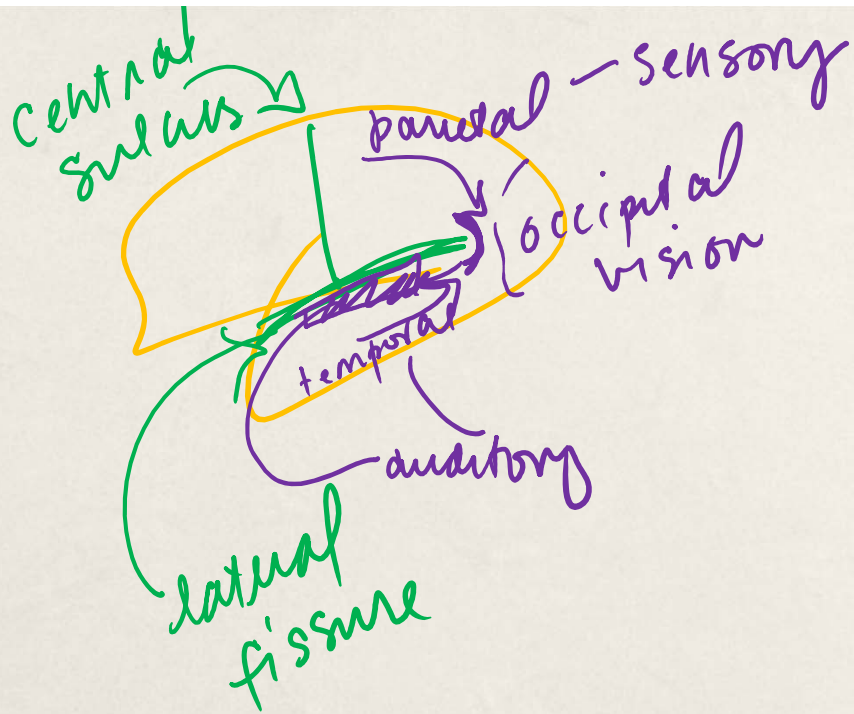 central
sulcus
parietal – sensory
occipital
vision
temporal
auditory
lateral
fissure